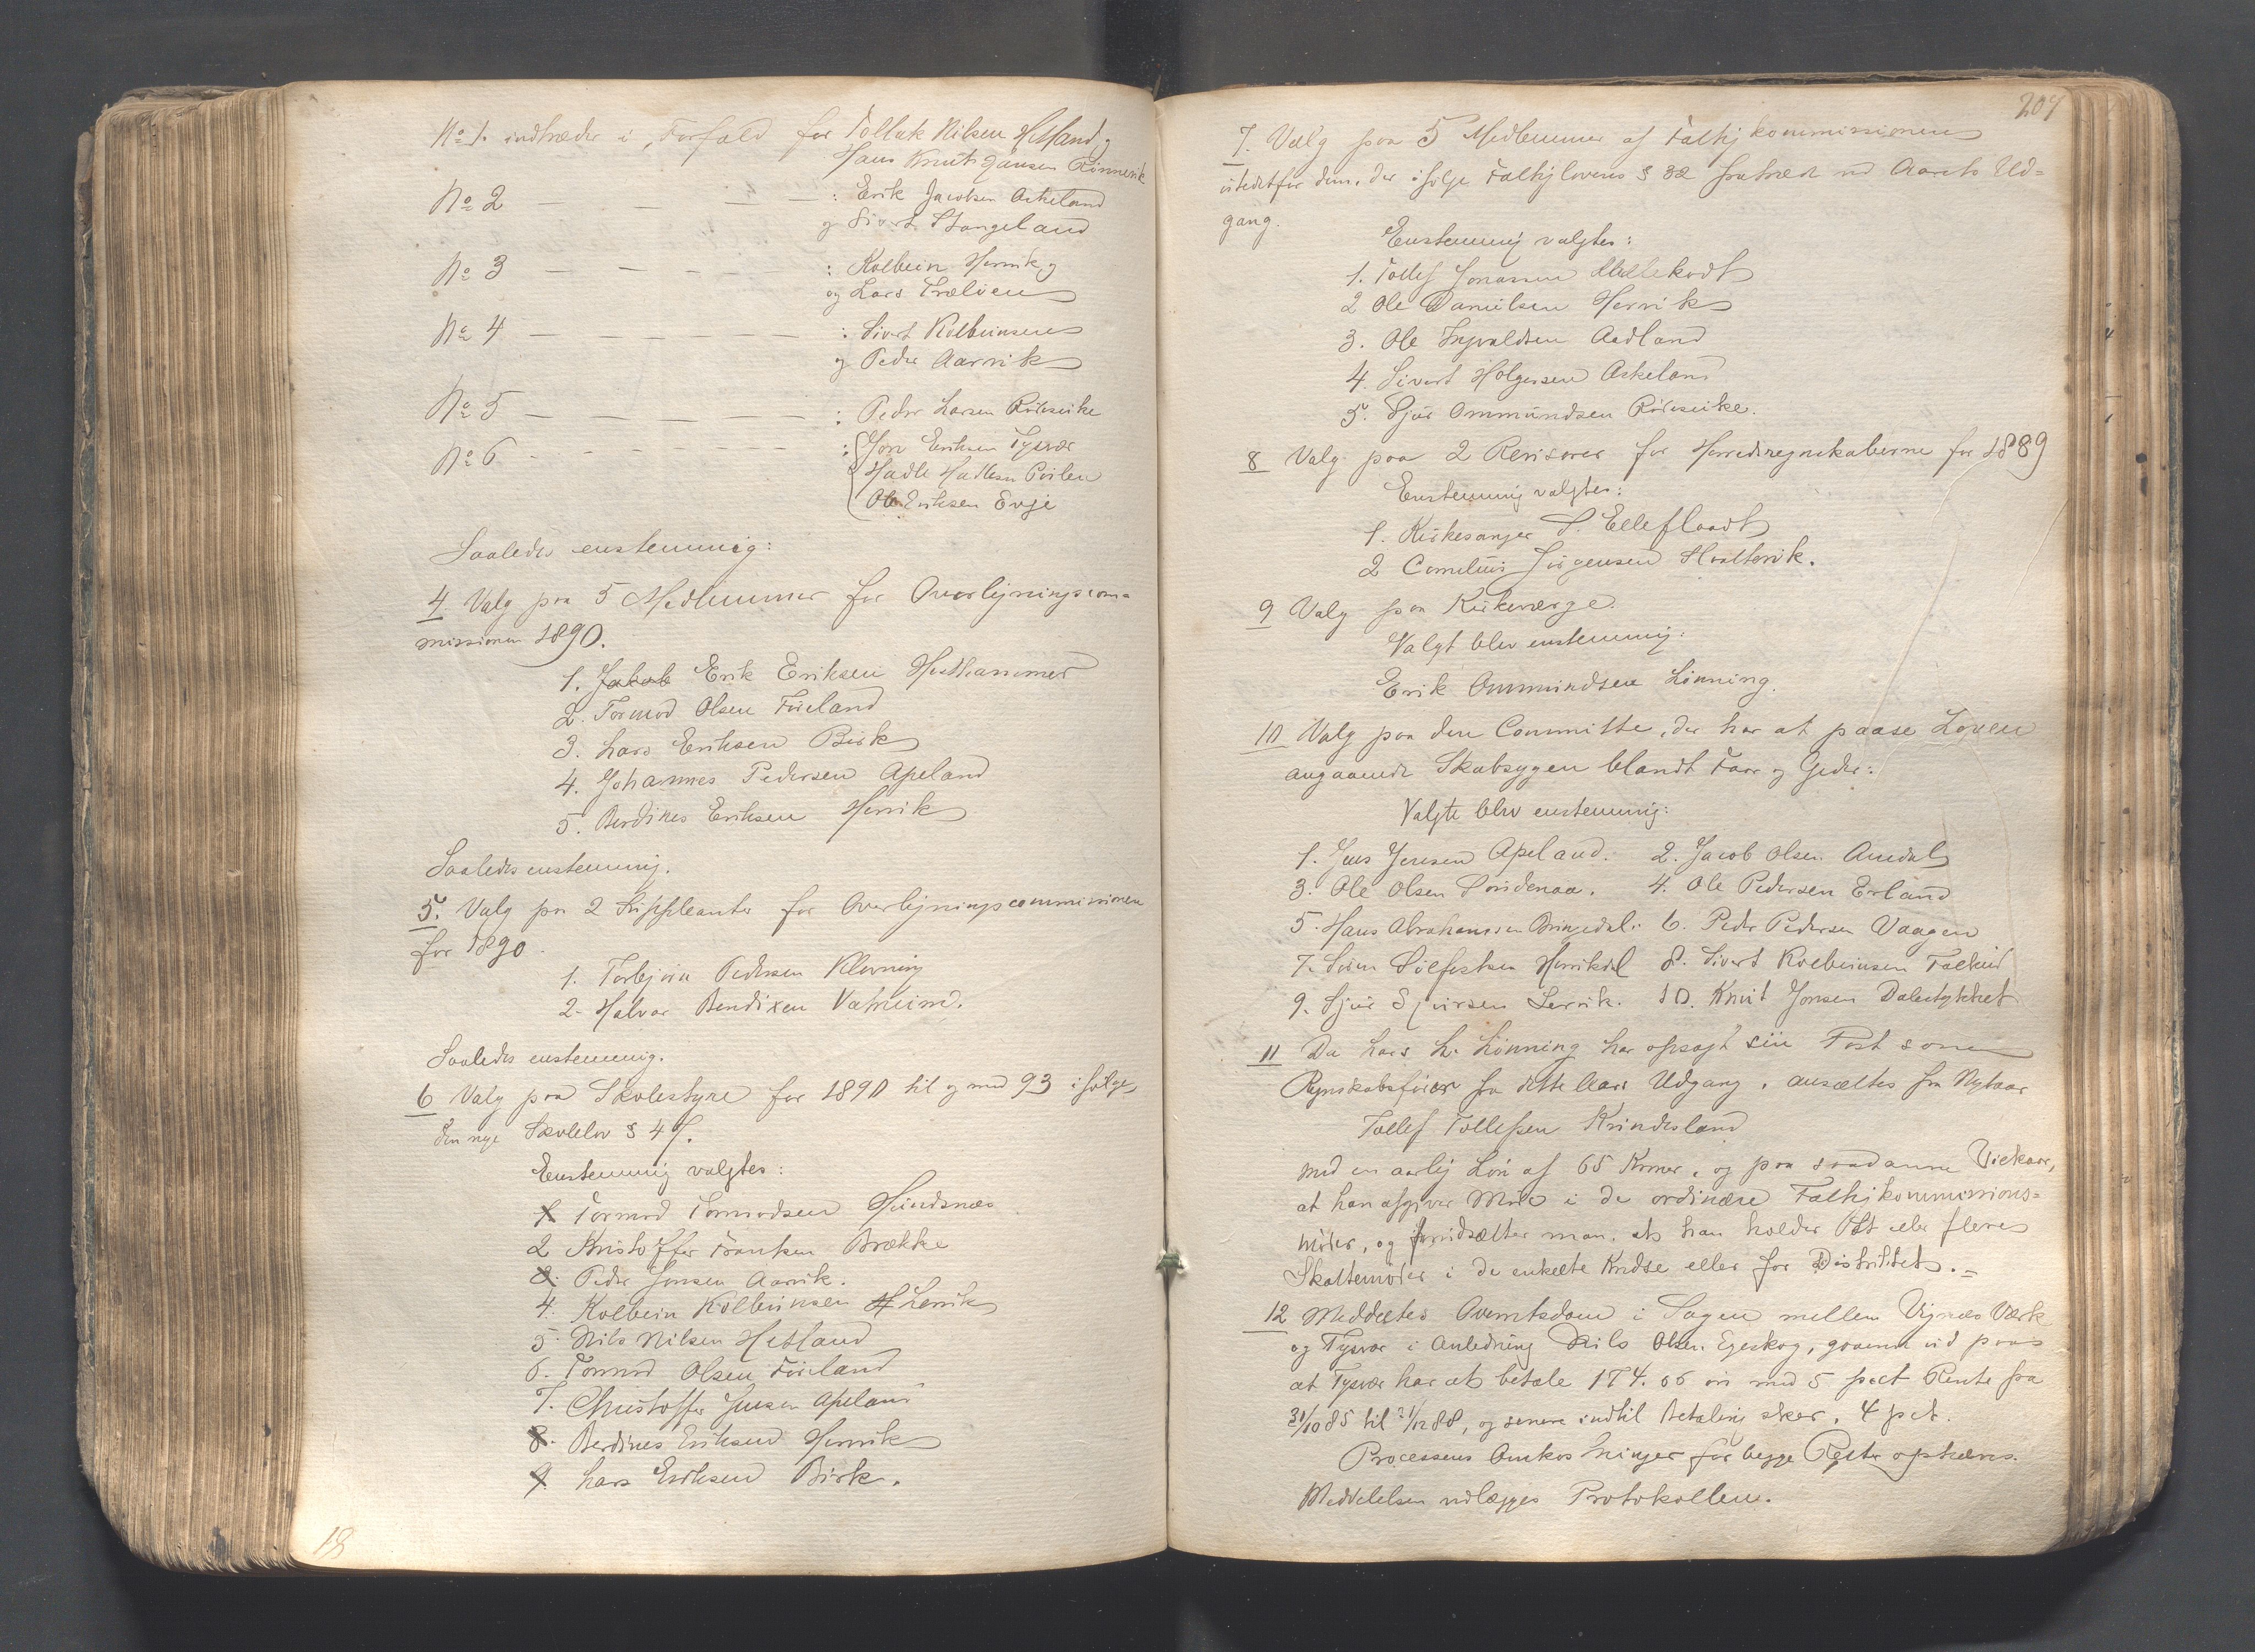 No 1. indtræder i Forfald for Tollak Nilsen Hetland,
Hans Knut Hansen Rønnevik
No 2 — — — — : Erik Jacobsen Askeland
og Sivert Stangeland
No 3 — — — — : Kolbein Hervik og
og Lars Trælvien
No 4 — — — — : Sivert Kolbeinsen
og Peder Aarvik
No 5 — — — — : Peder Larsen Røleseike
No 6 - - - - - - : Jon Eriksen Tysvær
Hadle Hadlesen
Ole Eriksen Evje
Saaledes enstemmig:
4 Valg paa 5 Medlemmer for Overligningscom-
missionen 1890.
1. Jakob Erik Eriksen Hesthammer
2. Tormod Olsen Førland
3. Lars Eriksen Birk
4. Johannes Pedersen Apeland
5. Berdines Eriksen Hervik
Saaledes enstemmig.
5. Valg paa 2 Suppleanter for Overligningscommissionen
for 1890.
1. Torbjørn Pedersen Kløvning
2. Halvor Bendixen Vatneim.
Saaledes enstemmig.
6 Valg paa Skolestyre for 1890 til og med 93 ifølge
den nye Skolelov § 47.
Enstemmig valgtes:
1 Tormod Tormodsen Hundsnæs
2 Kristoffer Frantsen Brække
3. Peder Jonsen Aarvik.
4. Kolbein Kolbeinsen H Lervik
5. Nils Nilsen Hetland
6. Tormod Olsen Førland
7. Christoffer Jensen Apeland
8. Berdines Eriksen Hervik
9. Lars Eriksen Birk.
18
204
7. Valg paa 5 Medlemmer af Fattigkommissionen
istedetfor dem, der ifølge Fattiglovens § 32 fratræde ved Aarets Ud-
gang.
Enstemmig valgtes:
1. Tollef Jonassen
2 Ole Danielsen Hervik
3. Ole Ingvaldsen Aadland
4. Sivert Holgersen Askeland
5. Sjur Ommundsen Røleseike.
8 Valg paa 2 Revisorer for Herredsregnskaberne for 1889
Enstemmig valgtes:
1. Kirkesanger S. Elleflaadt
2 Cornelius Jørgensen Hvaltevik.
9 Valg paa Kirkeværge.
Valgt blev enstemmig:
Erik Ommundsen Lønning.
10 Valg paa den Committe, der har at paase Loven
angaaende Skabsygen blandt Faar og Geder:
Valgte blev enstemmig:
1. Jens Jensen Apeland. 2. Jacob Olsen Amdal
3. Ole Olsen Søndenaa. 4. Ole Pedersen Erland
5. Hans Abrahamsen Bringedal. 6. Peder Pedersen Vaagen
7. Søren Sølfestsen Hervikdal 8. Sivert Kolbeinsen Falkeid
9. Sjur Sjursen Lervik. 10. Knut Jonsen Dalestykket
11 Da Lars L. Lønning har opsagt sin Post som
Regnskabsfører fra dette Aars Udgang, ansættes fra Nytaar
Tollef Tollefsen Krindesland
med en aarlig Løn af 65 Kroner, og paa saadanne Vilkaar,
at han afgiver Møde i de ordinære Fattigkommissions-
møder, og forudsætter man, at han holder Et eller flere
Skattemøder i de enkelte Kredse eller for Distriktet. =
12 Meddeltes Overretsdom i Sagen mellem Vigsnæs Værk
og Tysvær i Anledning Nils Olsen Egeskog, gaaende ud paa
at Tysvær har at betale 174.66 øre med 5 pct Rente fra
31/10 85 til 31/12 88, og senere indtil Betaling sker, 4 pct.
Processens Omkostninger for begge Retter ophæves.
Meddelelsen vedlægges Protokollen.